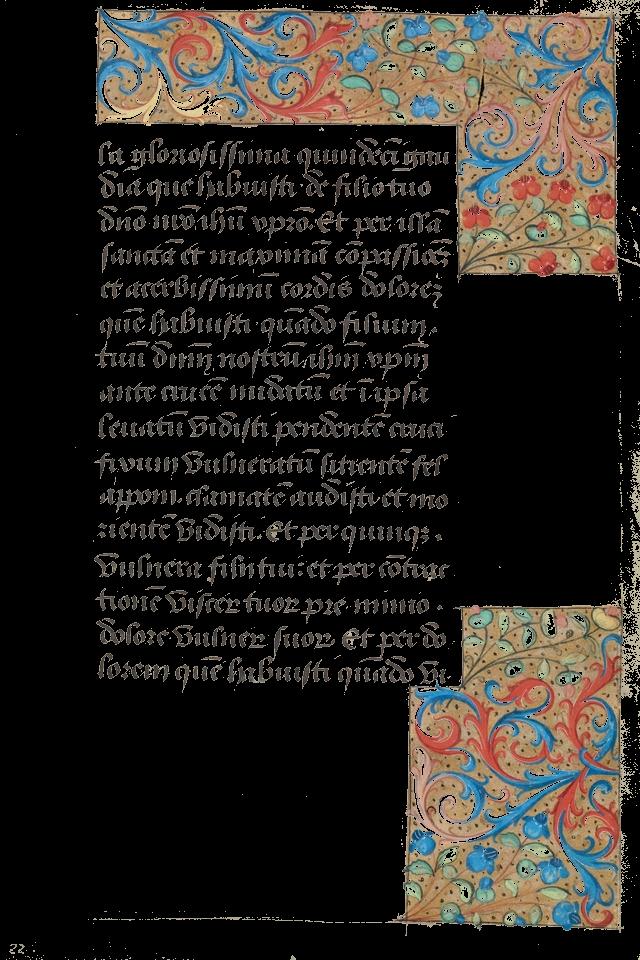 la gloriosissima quindeci gau
dia que habuisti de filio tuo
dño nrõ ihũ xprõ. Et per illã
sanctã et maximã cõpassiõẽ
et acerbissimũ cordis dolorez
quẽ habuisti quãdo filium.
tuũ dnm̃ nostrũ ihm̃ xpm̃
ante crucẽ nudatũ et ĩ ipsa
leuatũ vidisti pendentẽ cruci
fixum vulneratũ sitientẽ fel
apponi. clamãtẽ audisti et mo
rientẽ vidisti. Et per quinqz.
vulnera filii tui: et per cõtrac
tionẽ viscerꝝ tuoꝝ pre nimio.
dolore vulnerꝝ suoꝝ Et per do
lorem quẽ habuisti quãdo vi
22